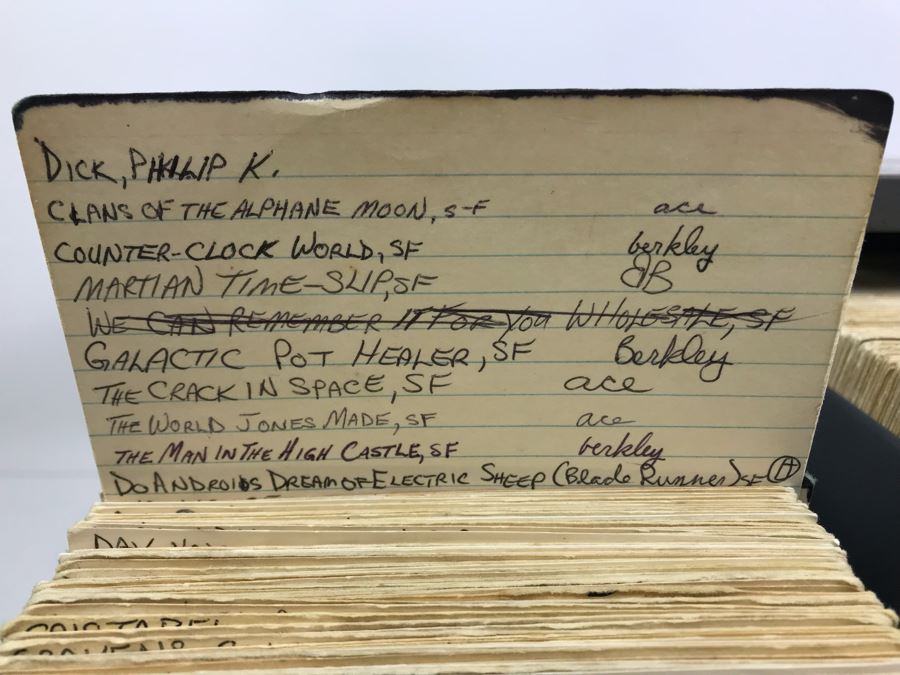 DICK, PHILLIP K.
CLANS OF THE ALPHANE MOON, S-F ace
COUNTER-CLOCK WORLD, SF berkley
MARTIAN TIME-SLIP, SF BB
WE CAN REMEMBER IT FOR YOU WHOLESALE, SF
GALACTIC POT HEALER, SF Berkley
THE CRACK IN SPACE, SF ace
THE WORLD JONES MADE, SF ace
THE MAN IN THE HIGH CASTLE, SF berkley
DO ANDROIDS DREAM OF ELECTRIC SHEEP (Blade Runner) SF